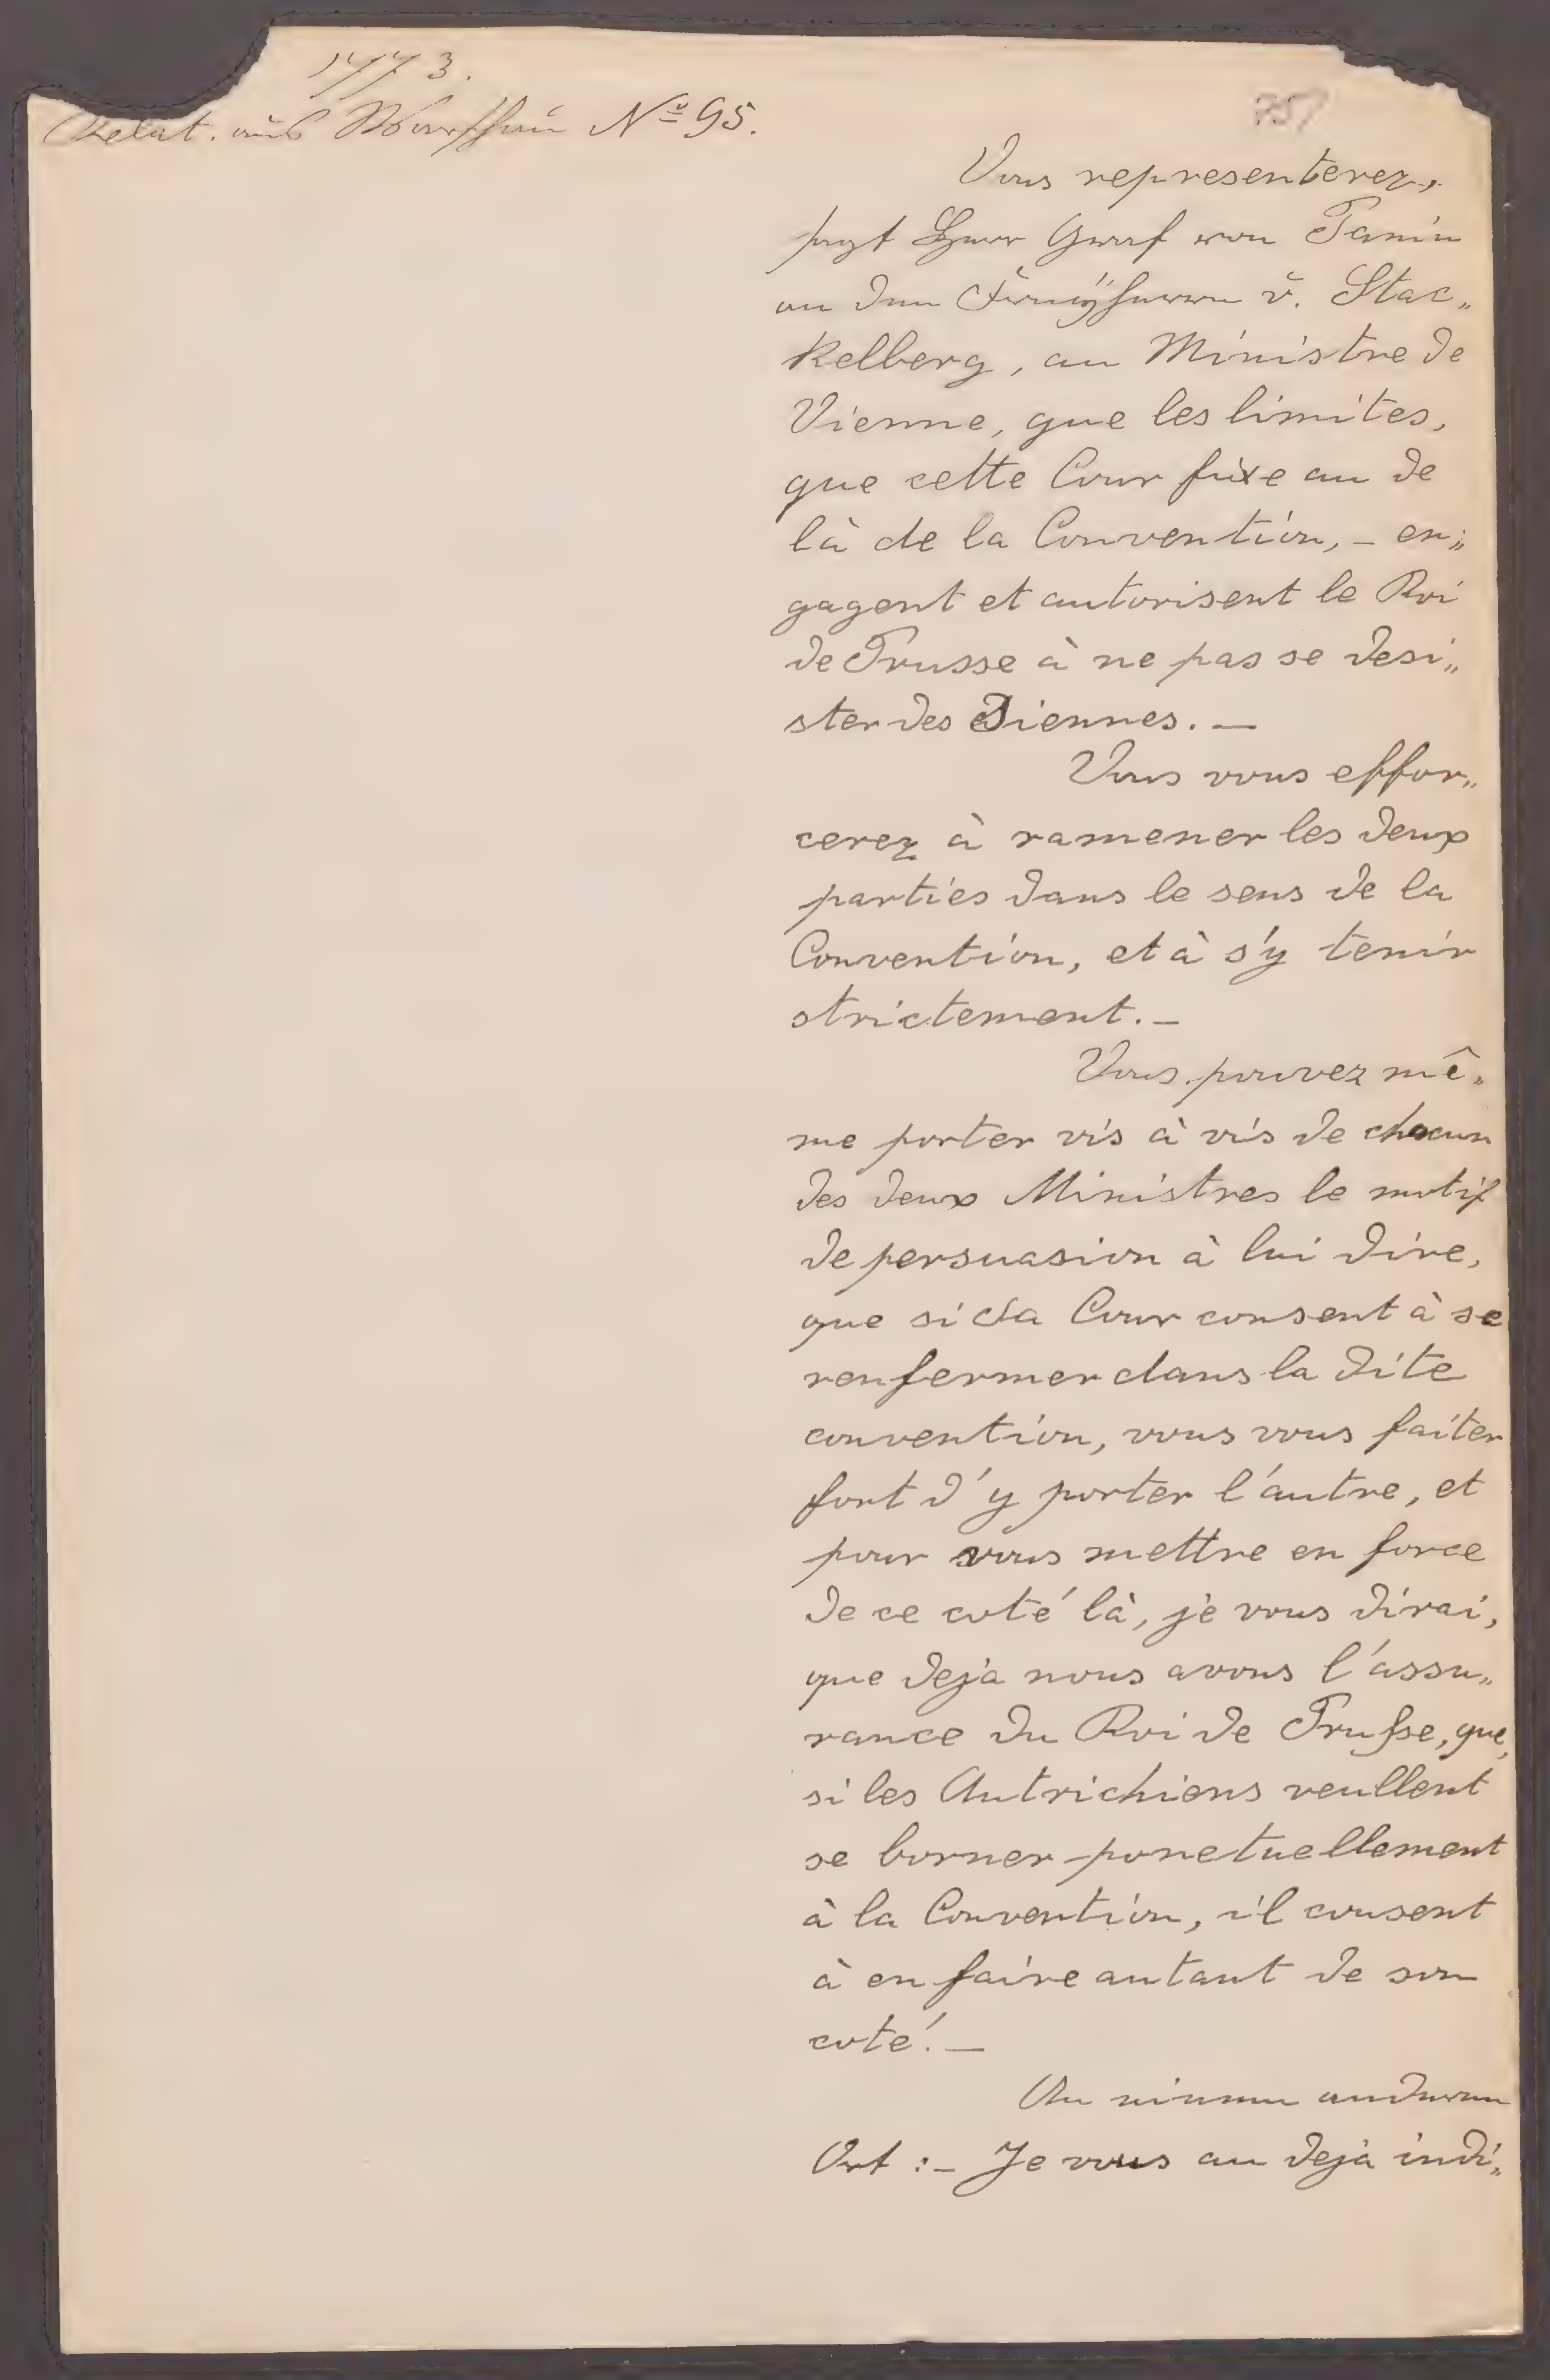 1773.
Relat. aus Warschau Nº 95.
75
Vous representerez,
sagt Herr Graf von Panin
an den Freÿherrn v. Stac„
kelberg, au Ministre de
Vienne, que les limites,
que cette Cour fixe au de
là de la Convention, – en„
gagent et autorisent le Roi
de Prusse à ne pas se desi„
ster des Siennes. –
Vous vous effor„
cerez à ramener les deux
parties dans le sens de la
Convention, et à s'y tenir
strictement. –
Vous pouvez mê„
me porter vis à vis de chacun
des deux Ministres le motif
de persuasion à lui dire,
que si Sa Cour consent à se
renfermer dans la dite
convention, vous vous faites
fort d'y porter l'autre, et
pour vous mettre en force
de ce coté là, je vous dirai,
que deja nous avons l'assu„
rance du Roi de Prusse, que,
si les Autrichiens veullent
se borner ponctuellement
à la Convention, il consent
à en faire autant de son
coté. –
An einem anderen
Ort :– Je vous au deja indi„